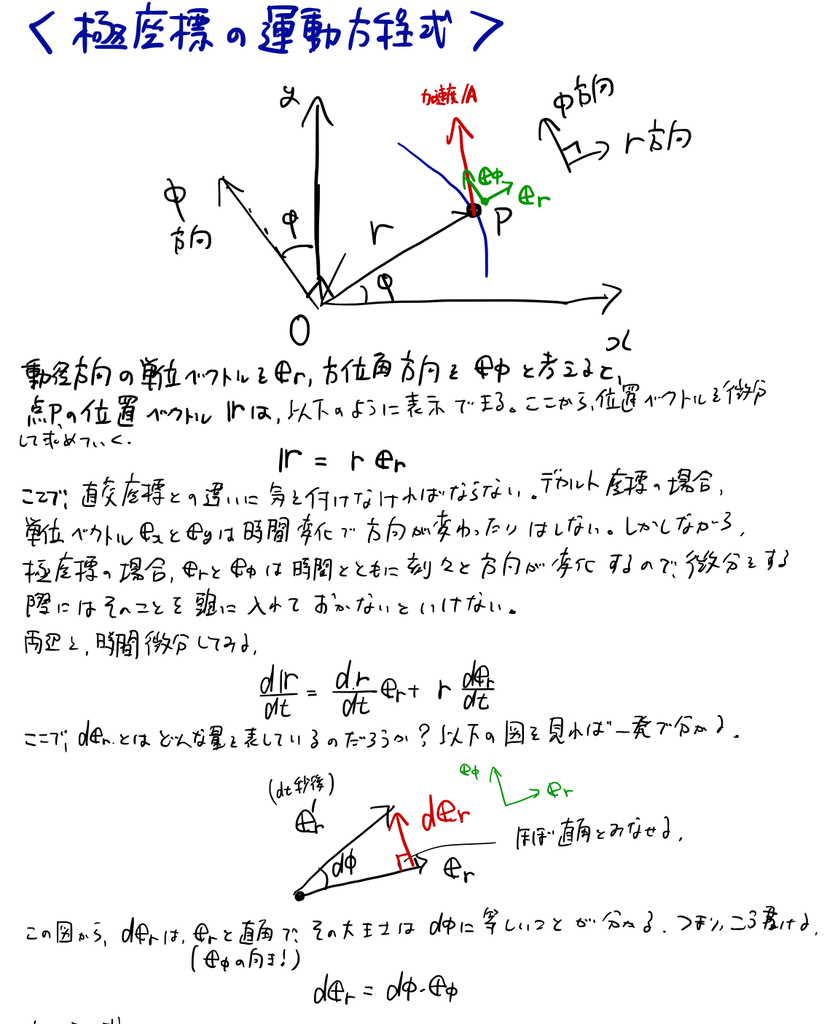 ＜極座標の運動方程式＞
y
加速度A
φ方向
r方向
φ方向
φ
r
eφ
er
P
φ
O
x
動径方向の単位ベクトルをer, 方位角方向をeφと考えると,
点Pの位置ベクトルrは, 以下のように表示できる。ここから, 位置ベクトルを微分
して求めていく.
r = r er
ここで, 直交座標との違いに気を付けなければならない。デカルト座標の場合,
単位ベクトルexとeyは時間変化で方向が変わったりはしない。しかしながら,
極座標の場合, erとeφは時間とともに刻々と方向が変化するので, 微分をする
際にはそのことを頭に入れておかないといけない。
両辺を, 時間微分してみる,
dr/dt = dr/dt er + r der/dt
ここで, derとはどんな量を表しているのだろうか？以下の図を見れば一発で分かる.
(dt秒後)
er'
der
eφ
er
ほぼ直角とみなせる.
dφ
er
この図から, derは, erと直角で, その大きさはdφに等しいことが分かる. つまり, こう書ける,
(eφの向き!)
der = dφ・eφ